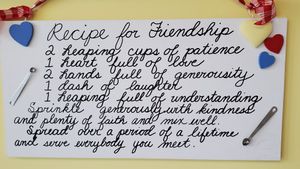 Recipe for Friendship
2 heaping cups of patience
1 heart full of love
2 hands full of generousity
1 dash of laughter
1 heaping full of understanding
Sprinkle generously with kindness
and plenty of faith and mix well.
Spread over a period of a lifetime
and serve everybody you meet.